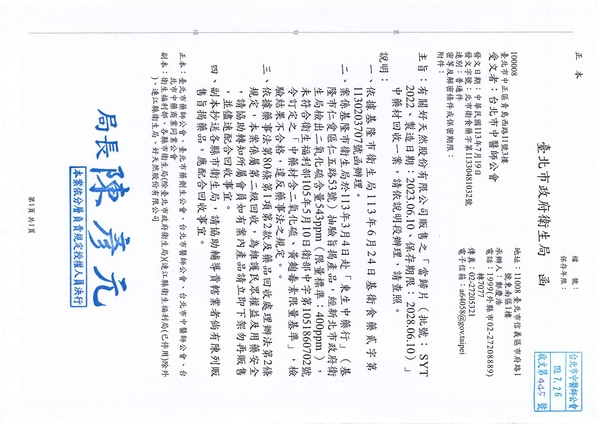 正本
檔　號：
保存年限：
臺北市政府衛生局　函
100008
臺北市中正區青島西路11號3樓
受文者：台北市中醫師公會
地址：11008 臺北市信義區市府路1
號東南區1樓
承辦人：
電話：1999(外縣市02-27208889)
轉7077
傳真：02-27205321
電子信箱：a64058@gov.taipei
發文日期：中華民國113年7月19日
發文字號：北市衛食藥字第1133048103號
速別：普通件
密等及解密條件或保密期限：
附件：
主旨：有關好天然股份有限公司販售之「當歸片（批號：SYT
2022、製造日期：2023.06.10、保存期限：2028.06.10）」
中藥材回收一案，請依說明段辦理，請查照。
說明：
一、依據基隆市衛生局113年6月24日基衛食藥貳字第
1130203707號函辦理。
二、案係基隆市衛生局於113年3月4日赴「東生中藥行」（基
隆市仁愛區仁五路53號）抽驗旨揭產品，經新北市政府衛
生局檢出二氧化硫含量543ppm（限量標準：400ppm），
未符合衛生福利部105年5月10日衛部中字第1051860702號
令訂定之「中藥材含二氧化硫、黃麴毒素限量基準」，檢
驗結果不合格，違反藥事法之規定。
三、依據藥事法第80條第1項第2款及藥品回收處理辦法第2條
規定，本案係屬第二級回收，為維護民眾權益及用藥安全
，請協助轉知所屬會員如有案內產品請立即下架勿再販售
，並儘速配合回收事宜。
四、副本抄送各縣市衛生局，請協助輔導貴轄業者倘有陳列販
售旨揭藥品，應配合回收事宜。
正本：臺北市藥師公會、臺北市藥劑生公會、台北市中醫師公會、台
北市中藥商業同業公會
副本：衛生福利部、各縣市衛生局(除臺北市政府衛生局)(連江縣衛生福利局(已停用)除外
)、連江縣衛生局、好天然股份有限公司
局長 陳彥元
本案依分層負責規定授權人員決行
第1頁 共1頁
台北市中醫師公會
113.7.26
收文第445號